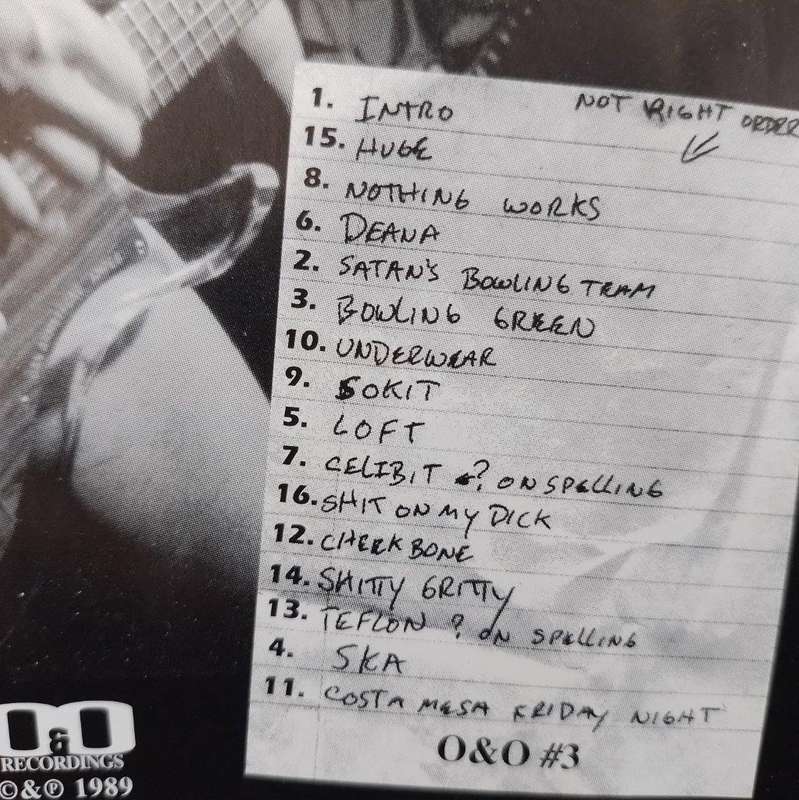 1. INTRO
NOT RIGHT ORDER
15. HUGE
8. NOTHING WORKS
6. DEANA
2. SATAN'S BOWLING TEAM
3. BOWLING GREEN
10. UNDERWEAR
9. SOKIT
5. LOFT
7. CELIBIT ? ON SPELLING
16. SHIT ON MY DICK
12. CHEEK BONE
14. SHITTY GRITTY
13. TEFLON ? ON SPELLING
4. SKA
11. COSTA MESA FRIDAY NIGHT
O&O #3
O&O
RECORDINGS
©&℗ 1989